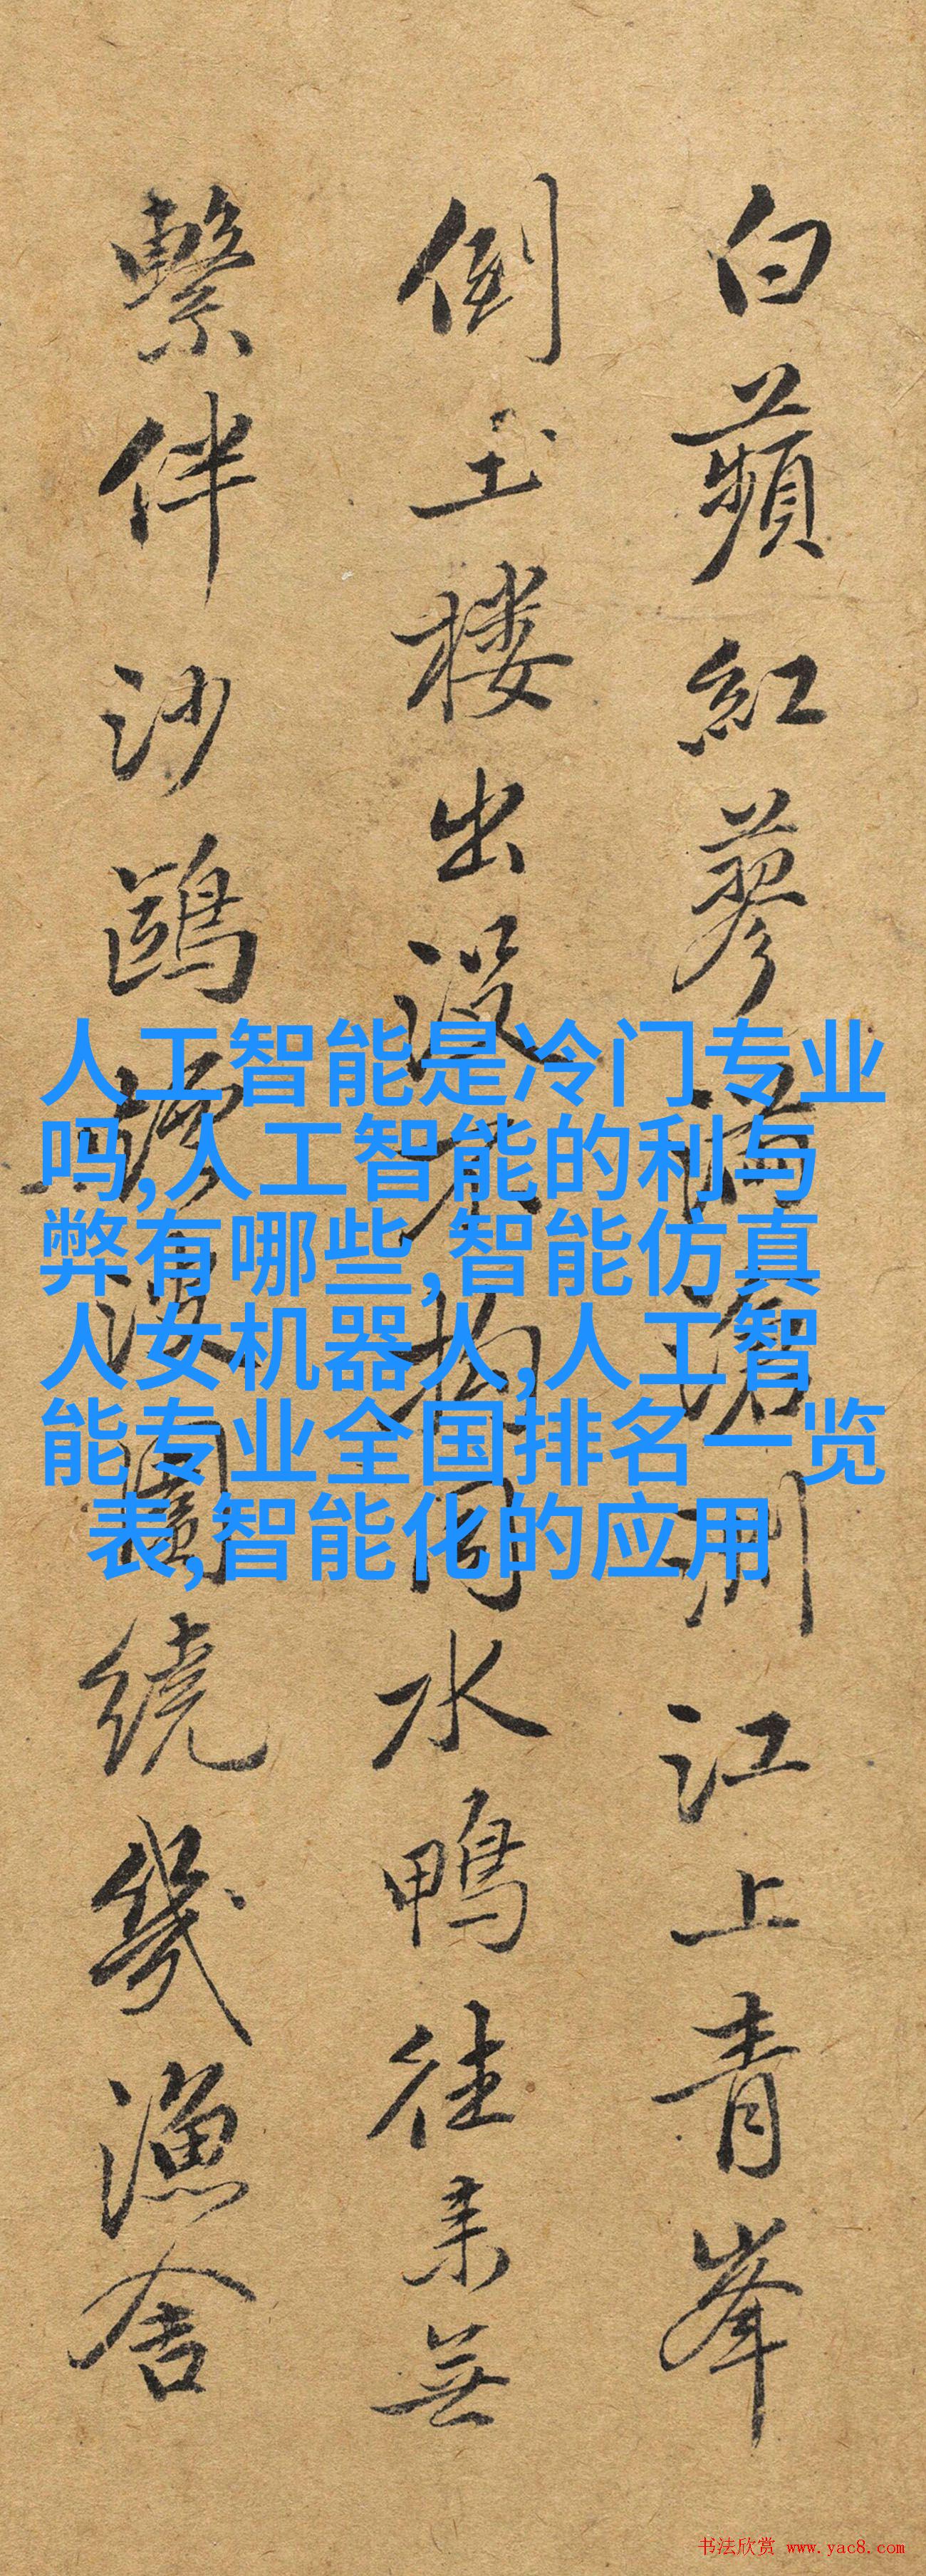 白蘋紅蓼滿滄洲江上青峯
倒玉楼出没不拘同水鴨往来無
繫伴沙鷗㶑圍绕幾漁舍
人工智能是冷门专业
吗,人工智能的利与
弊有哪些,智能仿真
人女机器人,人工智
能专业全国排名一览
表,智能化的应用
书法欣赏 www.yac8.com